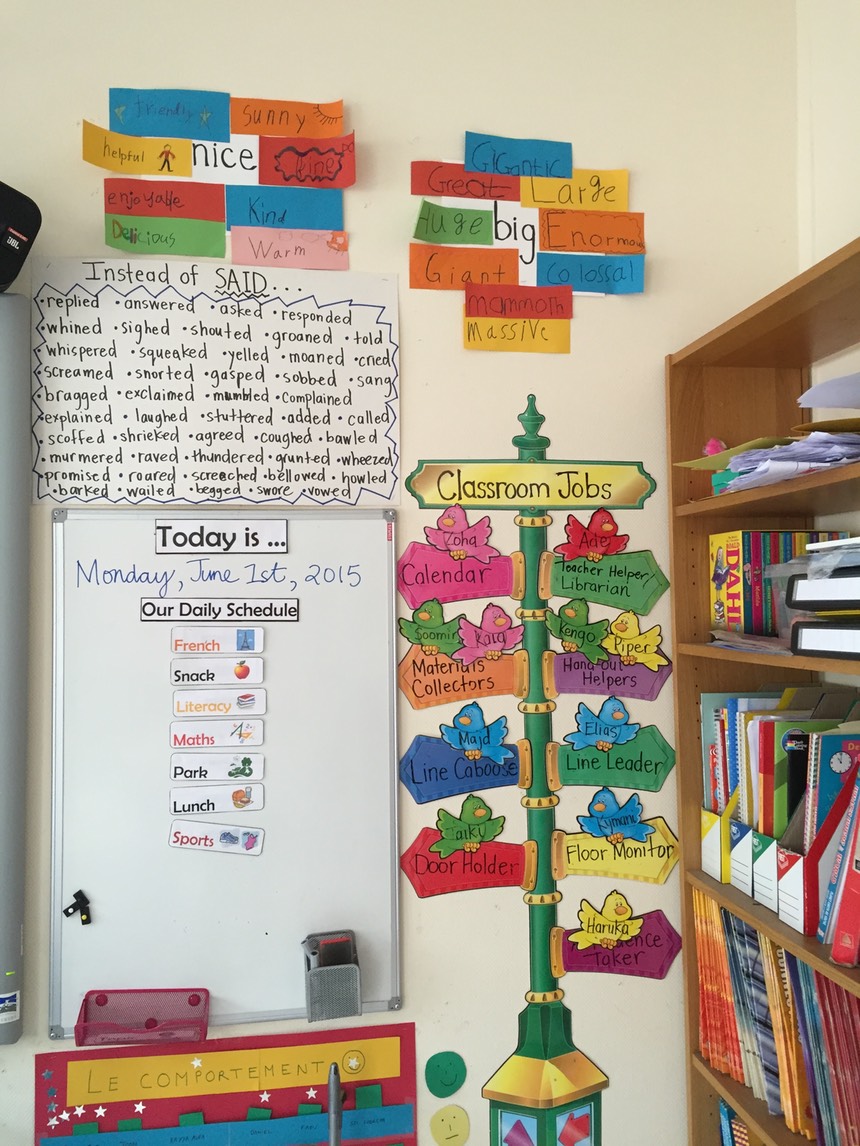 Friendly
sunny
helpful
nice
fine
enjoyable
Kind
Delicious
Warm
GiGantic
Great
Large
Huge
big
Enormou
Giant
colossal
mammoth
massive
Instead of SAID...
•replied •answered •asked •responded
•whined •sighed •shouted •groaned •told
•whispered •squeaked •yelled •moaned •cried
•screamed •snorted •gasped •sobbed •sang
•bragged •exclaimed •mumbled •complained
•explained •laughed •stuttered •added •called
•scoffed •shrieked •agreed •coughed •bawled
•murmered •raved •thundered •grunted •wheezed
•promised •roared •screeched •bellowed •howled
•barked •wailed •begged •swore •vowed
Today is ...
Monday, June 1st, 2015
Our Daily Schedule
French
Snack
Literacy
Maths
Park
Lunch
Sports
Classroom Jobs
Zoha
Calendar
Ade
Teacher Helper
Librarian
Soomin
Kaia
Materials
Collectors
Kengo
Piper
Hand-out
Helpers
Majd
Line Caboose
Elias
Line Leader
Taiky
Door Holder
Kymani
Floor Monitor
Haruka
Taker
LE COMPORTEMENT
JBL
ROALD
DAHL